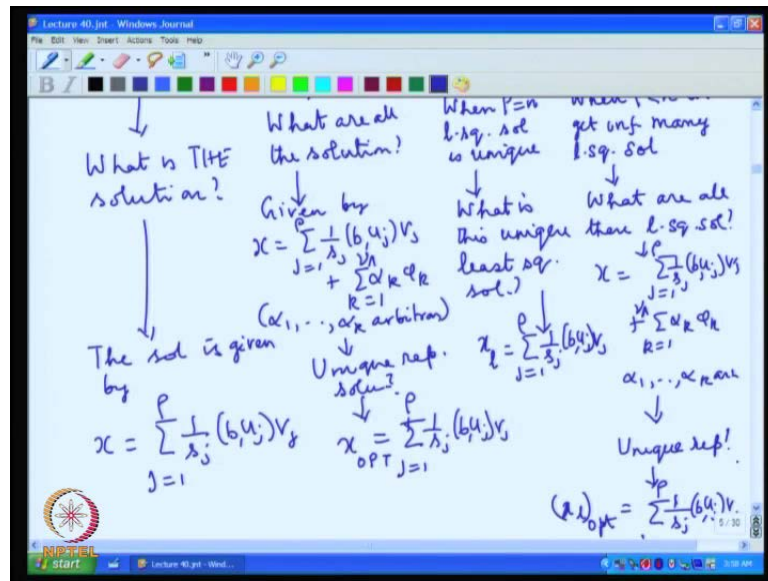 Lecture 40.jnt - Windows Journal
File Edit View Insert Actions Tools Help
B I
What is THE
solution?
The sol is given
by
x = ρ∑j=1 1/sj (b,uj) vj
What are all
the solution?
Given by
x = ρ∑j=1 1/sj (b,uj) vj
+ νA∑k=1 αk φk
(α1, .., αk arbitrary)
Unique rep.
solu?
xOPT = ρ∑j=1 1/sj (b,uj) vj
When ρ=n
l.sq. sol
is unique
What is
this unique
least sq.
sol.?
xl = ρ∑j=1 1/sj (b,uj) vj
get inf many
l.sq. sol
What are all
there l.sq sol?
x = ρ∑j=1 1/sj (b,uj) vj
+ νA∑k=1 αk φk
α1, .., αk
Unique rep!
(xl)opt = ρ∑ 1/sj (b,uj) v.
5 / 30
NPTEL
start
Lecture 40.jnt - Wind...
3:58 AM